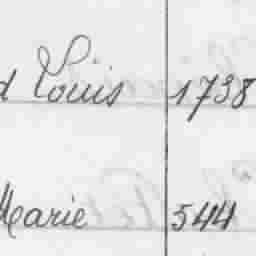 d Louis 1738
Marie 544